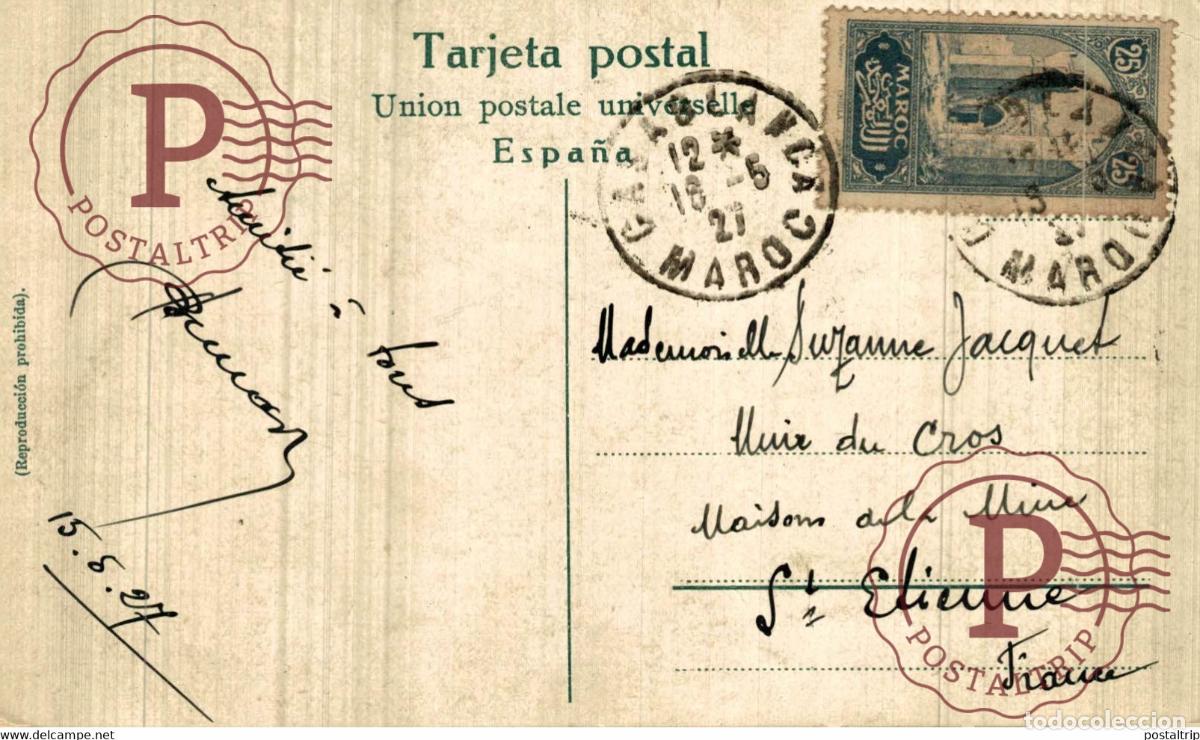 Tarjeta postal
Union postale universelle
España
CASABLANCA
12 *
16 - 5
27
MAROC
25
MAROC
25
MAROC
P
POSTALTRIP
Amitié
à
tous
15.5.27
(Reproducción prohibida).
Mademoiselle Suzanne Jacquet
Mine du Cros
Maisons de la Mine
St Etienne
France
P
POSTALTRIP
todocoleccion
www.delcampe.net
postaltrip